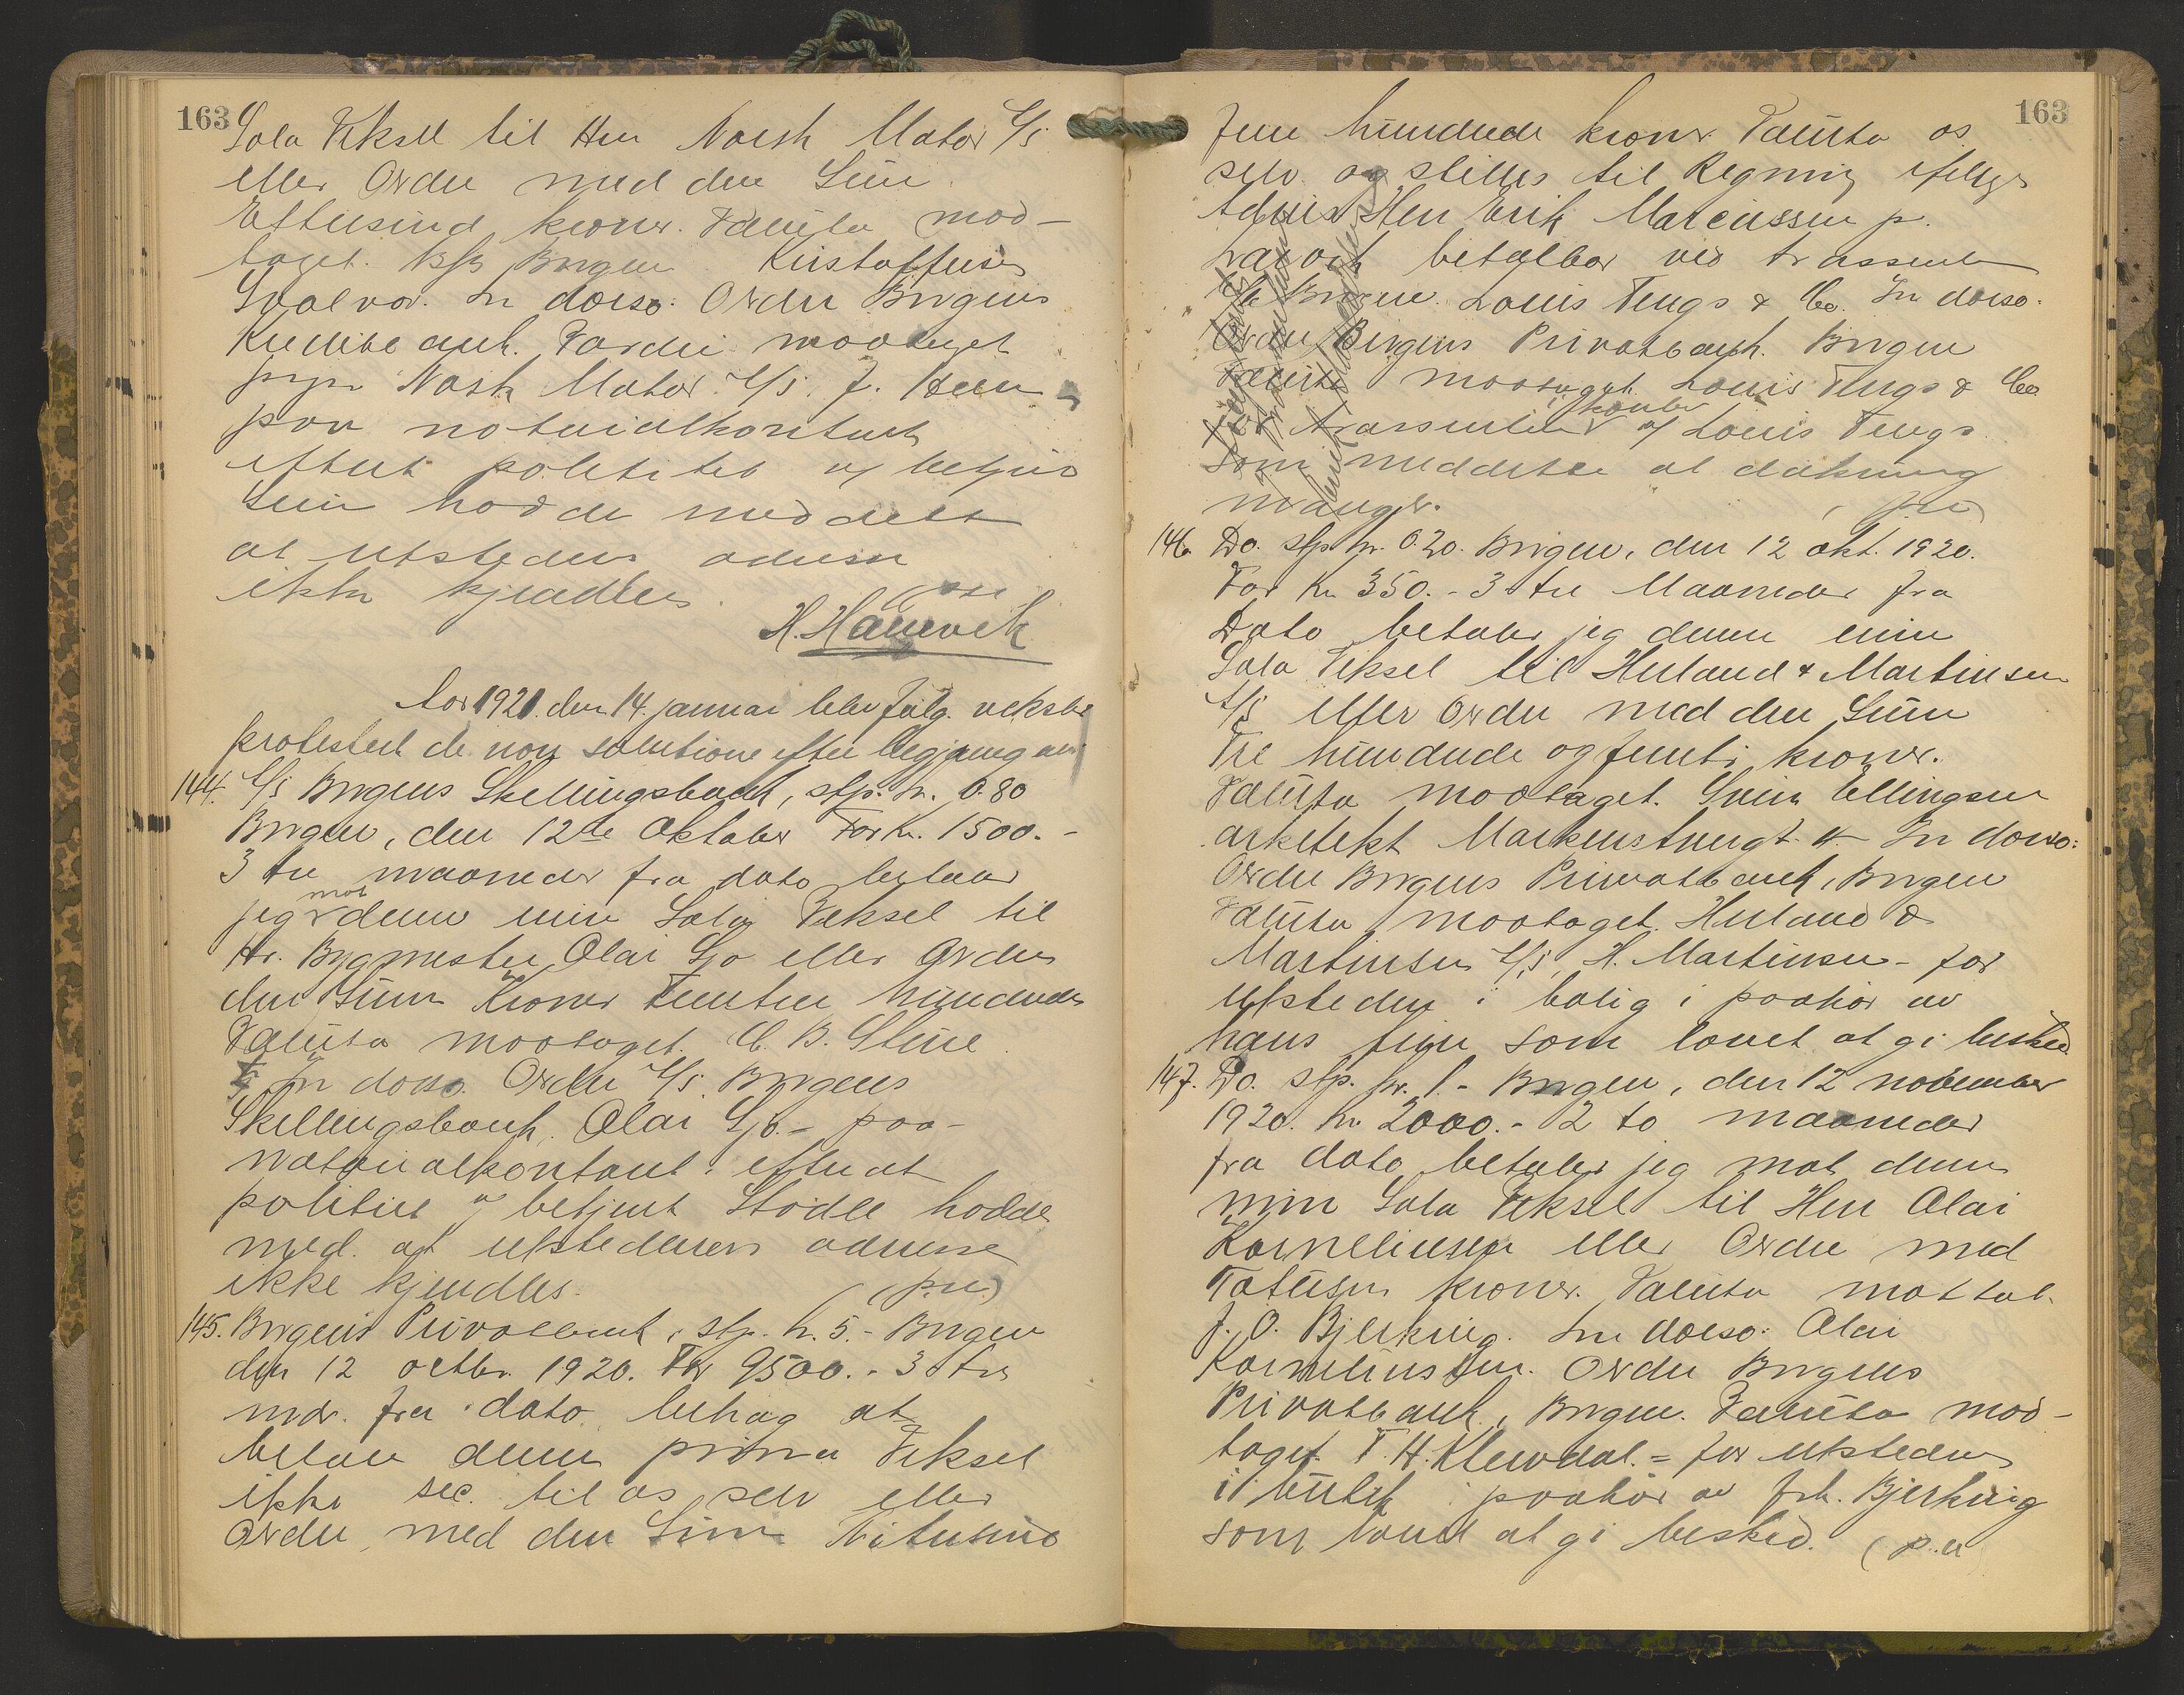 163
Sola Veksel til Hrr Norsk Motor A/S
eller Ordre med den Sum
Ettusind kroner. Valuta mod-
taget. Bergen Kristoffersen
In dorso: Ordre Bergens
Kreditbank. Værdi modtaget
Norsk Motor A/S. J.
paa notarialkontoret
efterat politiet v/ betjent
hadde meddelt
at utstederens adresse
ikke kjendtes.
H. Hauevik
Aar 1921. den 14. januar blev følg. veksler
protestert de non solutione efter begjæring av:
144. A/S Bergens Skillingsbank, stp. kr. 0.80
Bergen, den 12te Oktober For Kr. 1500.-
3 tre maaneder fra dato betaler
mot
jeg denne min Sola Veksel til
Hr. Bygmester Olai Sjo eller Ordre
den Sum Kroner Femten hundrede
Valuta modtaget. C. B.
In dorso. Ordre A/S. Bergens
Skillingsbank. Olai Sjo. - paa
notarialkontoret efterat
politiet v/ betjent Stödle hadde
med. at utstederens adresse
ikke kjendtes. (p.u.)
145. Bergens Privatbank, stp. kr. 5.- Bergen
den 12 octbr. 1920. For 9500.- 3 tre
mdr. fra dato behag at
betale denne prima Veksel
ikke sec. til os selv eller
Ordre, med den Sum Nitusind
163
Fem hundrede kroner Valuta os
selv og stilles til Regning ifølge
Advis Herr Erik Marcussen p.
betalbar ved trassenten
Bergen. Louis Tengs & Co. In dorso.
Ordre Bergens Privatbank. Bergen
Valuta modtaget Louis Tengs & Co
kontor
for trassenten v/ Louis Tengs.
som meddelte at dækning
mangler.
146. Do. stp. kr. 0.20. Bergen, den 12 okt. 1920.
For Kr 350.- 3 tre Maaneder fra
Dato betaler jeg denne min
Sola Veksel til Herland & Martinsen
A/S eller Ordre med den Sum
Tre hundrede og femti kroner.
Valuta modtaget. Svein Ellingsen
arkitekt Markenstræugt. 4 In dorso:
Ordre Bergens Privatbank, Bergen
Valuta modtaget. Herland &
Martinsen A/S, H. Martinsen - for
utstederen i bolig i paahør av
hans som lovet at gi besked
147. Do. stp. kr. 1.- Bergen, den 12 november
1920. kr 2000.- 2 to maaneder
fra dato betaler jeg mot denne
min Sola Veksel til Herr Olai
Korneliussen eller Ordre med
Totusen kroner. Valuta mottat.
J. O. Bjerkvig. In dorso: Olai
Korneliussen. Ordre Bergens
Privatbank, Bergen. Valuta mod-
taget. T. H. Klewdal. = for utstederen
i butik i paahør av frk. Bjerkvig
som lovet at gi besked. (p.u